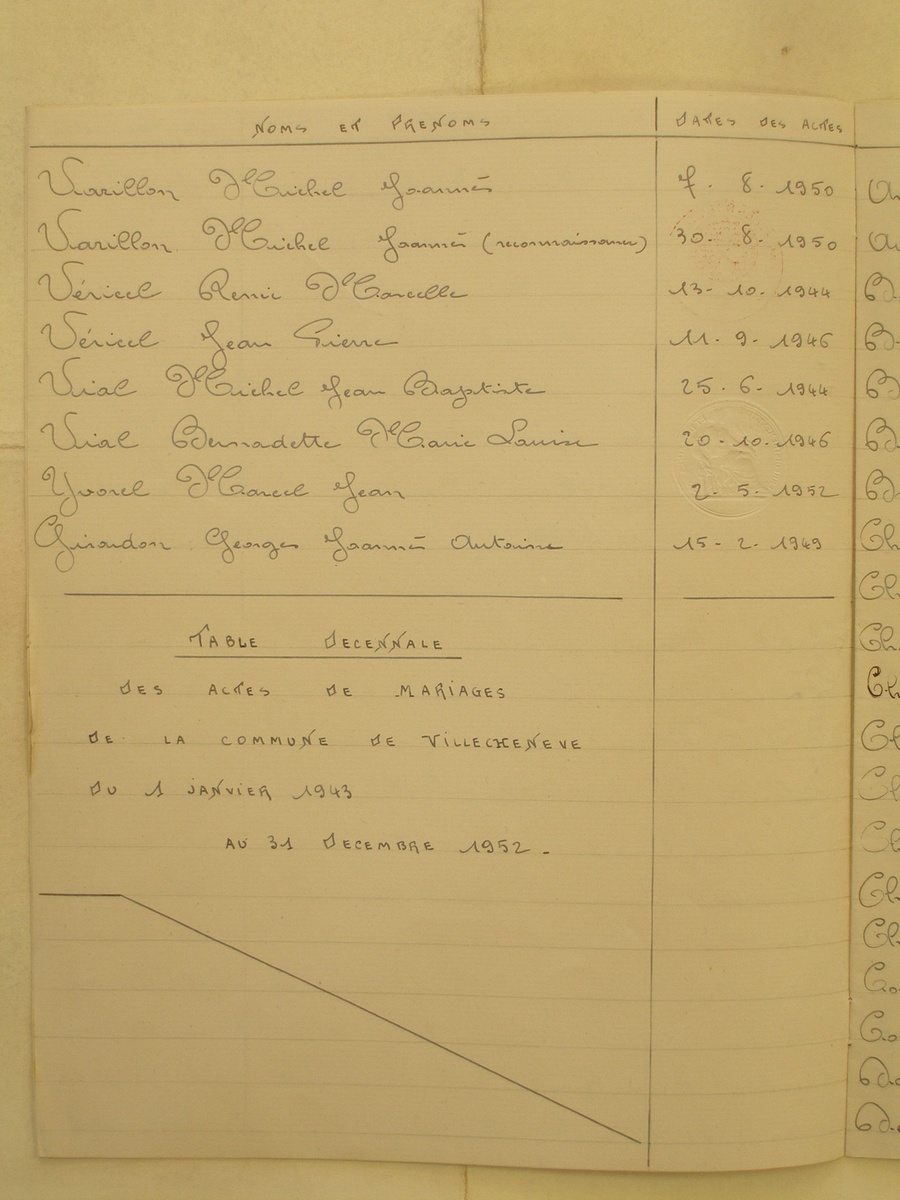 NOMS ET PRENOMS DATES DES ACTES
Varillon Michel Joannès 7. 8. 1950
Varillon Michel Joannès (reconnaissance) 30. 8. 1950
Véricel Remie Marcelle 13-10.1944
Véricel Jean Pierre 11. 9. 1946
Vial Michel Jean Baptiste 25. 6. 1944
Vial Bernadette Marie Louise 20.10.1946
Yvorel Marcel Jean 2. 5. 1952
Girondon Georges Joannès Antoine 15-2.1949
TABLE DECENNALE
DES ACTES DE MARIAGES
DE LA COMMUNE DE VILLECHENEVE
DU 1 JANVIER 1943
AU 31 DECEMBRE 1952.